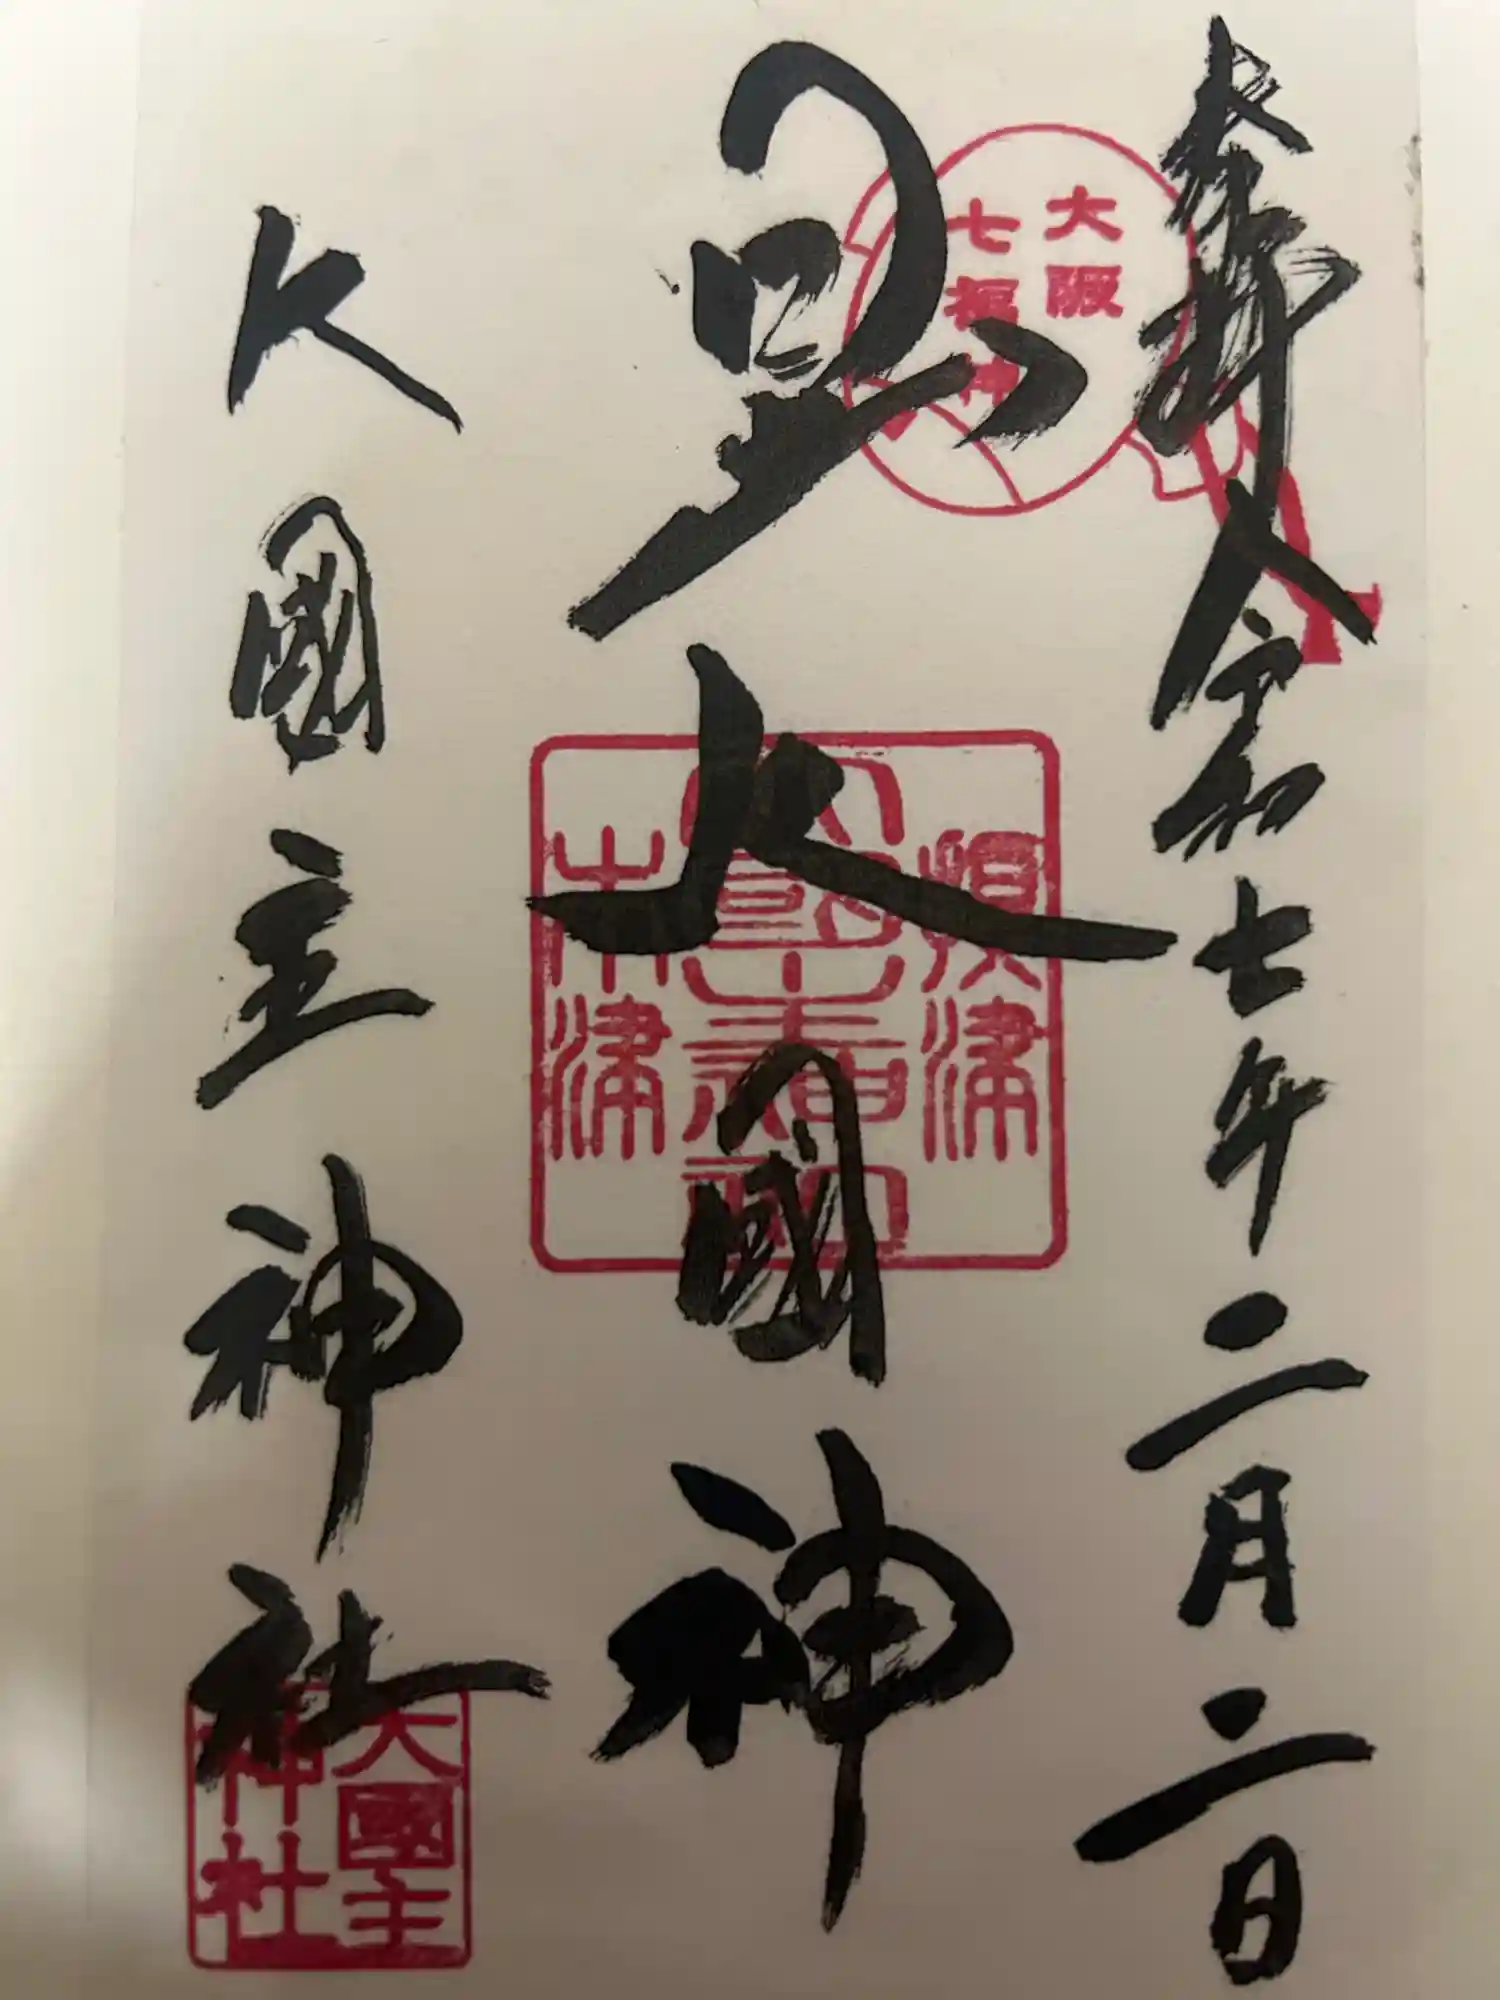 奉拝 令和七年二月二日
大阪
七福神
日出大國神
攝津
大國主神社
木津
大國主神社
大國主
神社